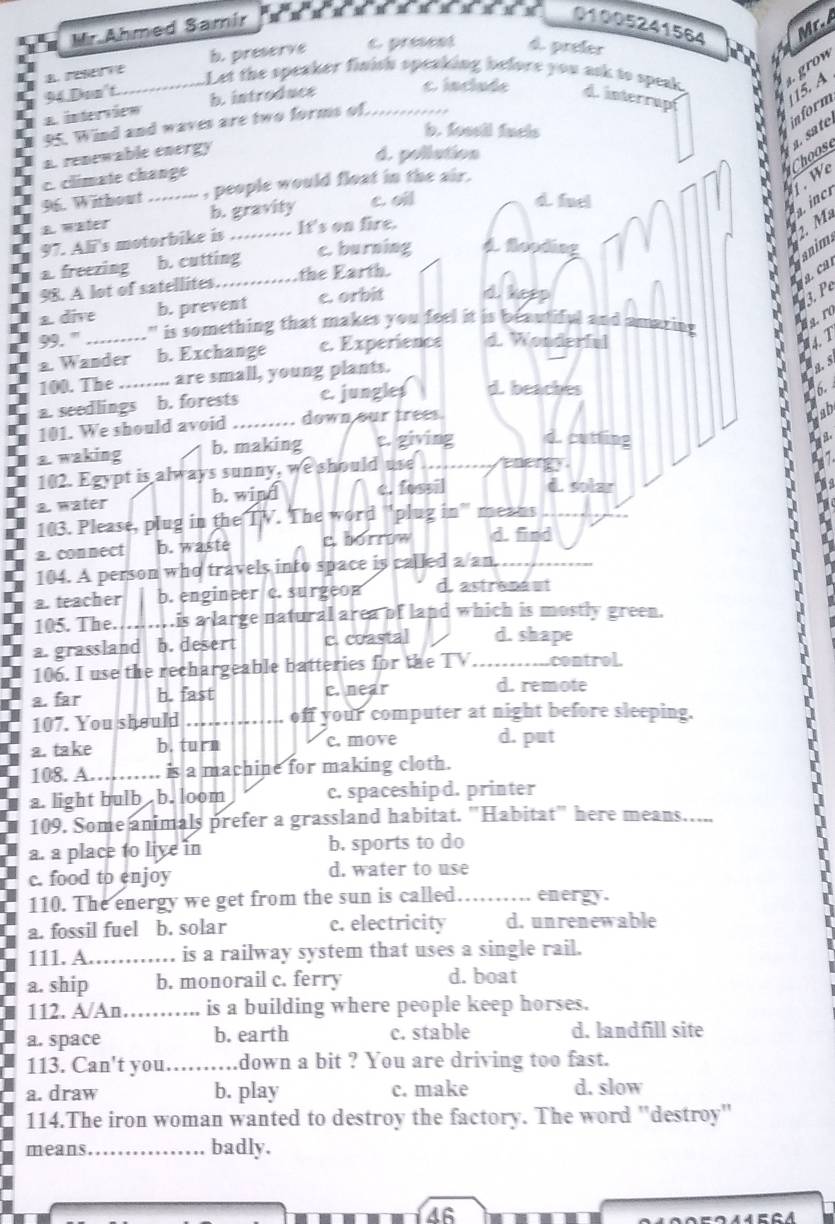 Mr.Ahmed Samir 01005241564
a. reserve b. preserve c. present d. prefer
94.Don't............Let the speaker finish speaking before you ask to speak.
a. interview b. introduce c. include d. interrupt
95. Wind and waves are two forms of.............
a. renewable energy b. fossil fuels
c. climate change d. pollution
96. Without ........ , people would float in the air.
a. water b. gravity c. oil d. fuel
97. Ali's motorbike is ......... It's on fire.
a. freezing b. cutting c. burning d. flooding
98. A lot of satellites............the Earth.
a. dive b. prevent c. orbit d. keep
99. " ........." is something that makes you feel it is beautiful and amazing
a. Wander b. Exchange c. Experience d. Wonderful
100. The ........ are small, young plants.
a. seedlings b. forests c. jungles d. beaches
101. We should avoid ......... down our trees.
a. waking b. making c. giving d. cutting
102. Egypt is always sunny, we should use ........... energy.
a. water b. wind c. fossil d. solar
103. Please, plug in the TV. The word "plug in" means .............
a. connect b. waste c. borrow d. find
104. A person who travels into space is called a/an...............
a. teacher b. engineer c. surgeon d. astronaut
105. The..........is a large natural area of land which is mostly green.
a. grassland b. desert c. coastal d. shape
106. I use the rechargeable batteries for the TV............control.
a. far b. fast c. near d. remote
107. You should .............. off your computer at night before sleeping.
a. take b. turn c. move d. put
108. A........... is a machine for making cloth.
a. light bulb b. loom c. spaceship d. printer
109. Some animals prefer a grassland habitat. "Habitat" here means.....
a. a place to live in b. sports to do
c. food to enjoy d. water to use
110. The energy we get from the sun is called........... energy.
a. fossil fuel b. solar c. electricity d. unrenewable
111. A............. is a railway system that uses a single rail.
a. ship b. monorail c. ferry d. boat
112. A/An........... is a building where people keep horses.
a. space b. earth c. stable d. landfill site
113. Can't you..........down a bit ? You are driving too fast.
a. draw b. play c. make d. slow
114.The iron woman wanted to destroy the factory. The word "destroy"
means................. badly.
46